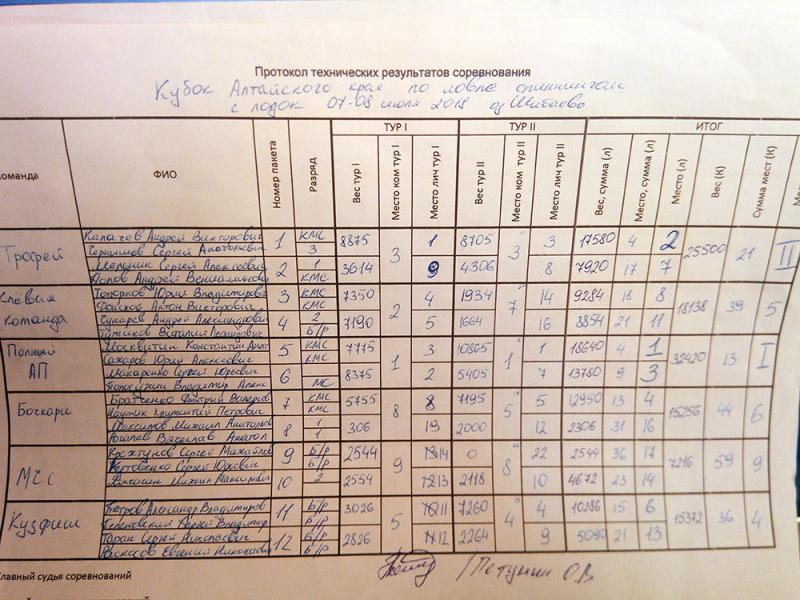 Протокол технических результатов соревнования
Кубок Алтайского края по ловле спиннингом
с лодок 07-08 июля 2018 оз Шибаево
оманда ФИО Номер пакета Разряд ТУР I ТУР II ИТОГ
Вес тур I Место ком тур I Место лич тур I Вес тур II Место ком тур II Место лич тур II Вес, сумма (л) Место, сумма (л) Место (л) Вес (К) Сумма мест (К)
Трофей Калачев Андрей Викторович 1 КМС 8875 3 1 8705 3 3 17580 4 2 25500 21 II
Сергей Анатольевич 3
Мельник Сергей Алексеевич 2 1 3614 9 4306 8 7920 17 7
Попов Андрей Вениаминович КМС
Клёвая команда Топорков Юрий Владимиров 3 КМС 7350 2 4 1934 7 14 9284 18 8 18138 39 5
Антон Викторович КМС
Андрей Александрович 4 2 7190 5 1664 16 8854 21 11
Виталий Б/р
Полный АП Москвитин Константин Анат 5 КМС 7775 1 3 10865 1 1 18640 4 1 32420 13 I
Сахаров Юрий Алексеевич КМС
Макаренко Сергей Юрьевич 6 8375 2 5405 7 13780 9 3
Владимир Алек МС
Бочкари Братченко Дмитрий Валерьев 7 КМС 5755 8 8 7195 5 5 12950 13 4 15256 44 6
Петрович КМС
Максимов Михаил Анатольев 8 1 306 19 2000 12 2306 31 16
Вячеслав Анатол 1
МЧС Сергей Михайлов 9 Б/р 2544 9 14 0 8 22 2544 36 17 7216 59 9
Сергей Юрьевич Б/р
Михаил Максимович 10 2 2554 13 2118 10 4672 23 14
Кузфиш Петров Александр Владимиров 11 Б/р 3026 5 11 7260 4 4 10286 15 6 15372 36 4
Сергей Владимир Б/р
Таран Сергей Николаевич 12 Б/р 2826 12 2264 9 5090 21 13
Евгений Николаевич Б/р
Главный судья соревнований /Петунин О.В